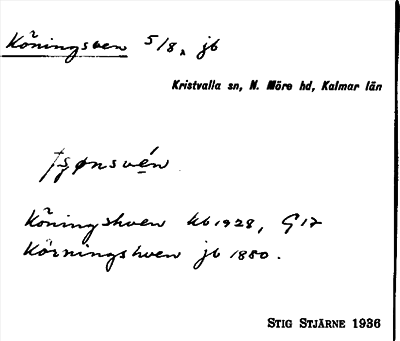 Köningsven 5/8, jb
Kristvalla sn, N. Möre hd, Kalmar län
Köningshven kb 1928, G17
Körningshven jb 1880.
STIG STJÄRNE 1936